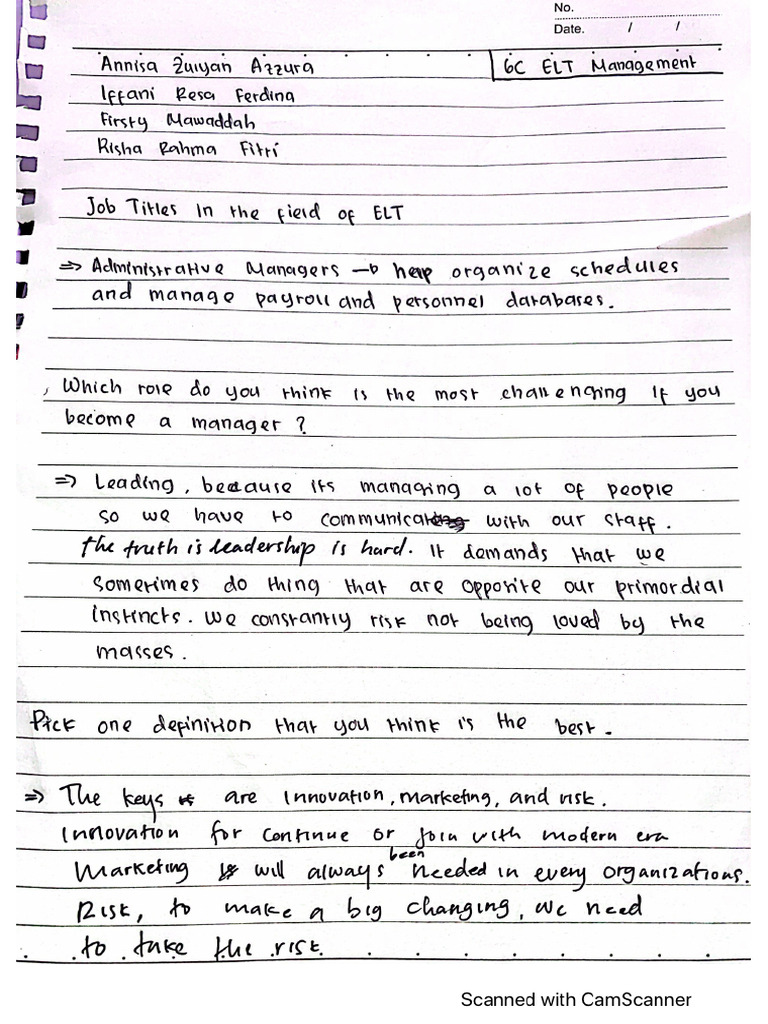 No.
Date. / /
Annisa Zuiyan Azzura
6C ELT Management
Iffani Resa Ferdina
Firsty Mawaddah
Risha Rahma Fitri
Job Titles in the field of ELT
⇒ Administrative Managers → help organize schedules
and manage payroll and personnel databases.
, Which role do you think is the most challenging if you
become a manager?
⇒ Leading, because its managing a lot of people
so we have to communicate with our staff.
the truth is leadership is hard. It demands that we
sometimes do thing that are opposite our primordial
instincts. We constantly risk not being loved by the
masses.
Pick one definition that you think is the best.
⇒ The keys are innovation, marketing, and risk.
Innovation for continue or join with modern era
Marketing will always been needed in every organizations.
Risk, to make a big changing, we need
to take the risk.
Scanned with CamScanner